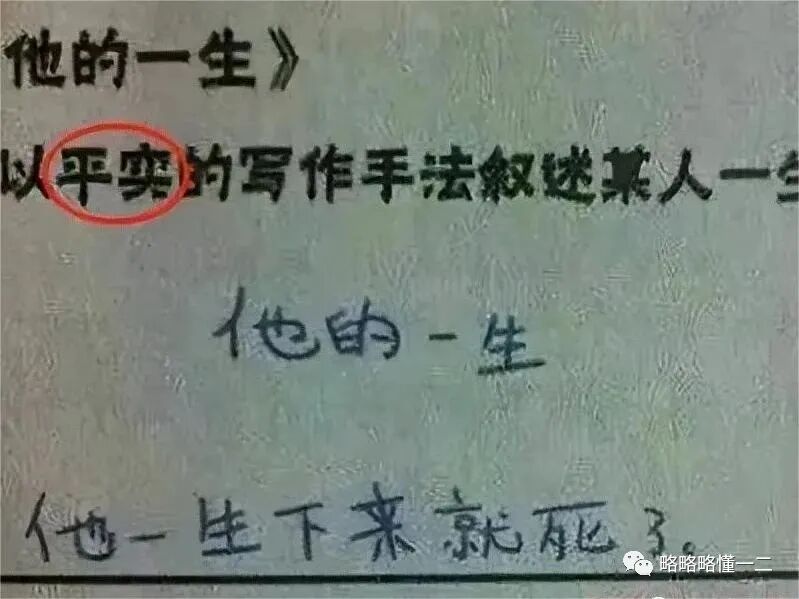 他的一生》
以平实的写作手法叙述某人一生
他的一生
他一生下来就死了。
略略略懂一二